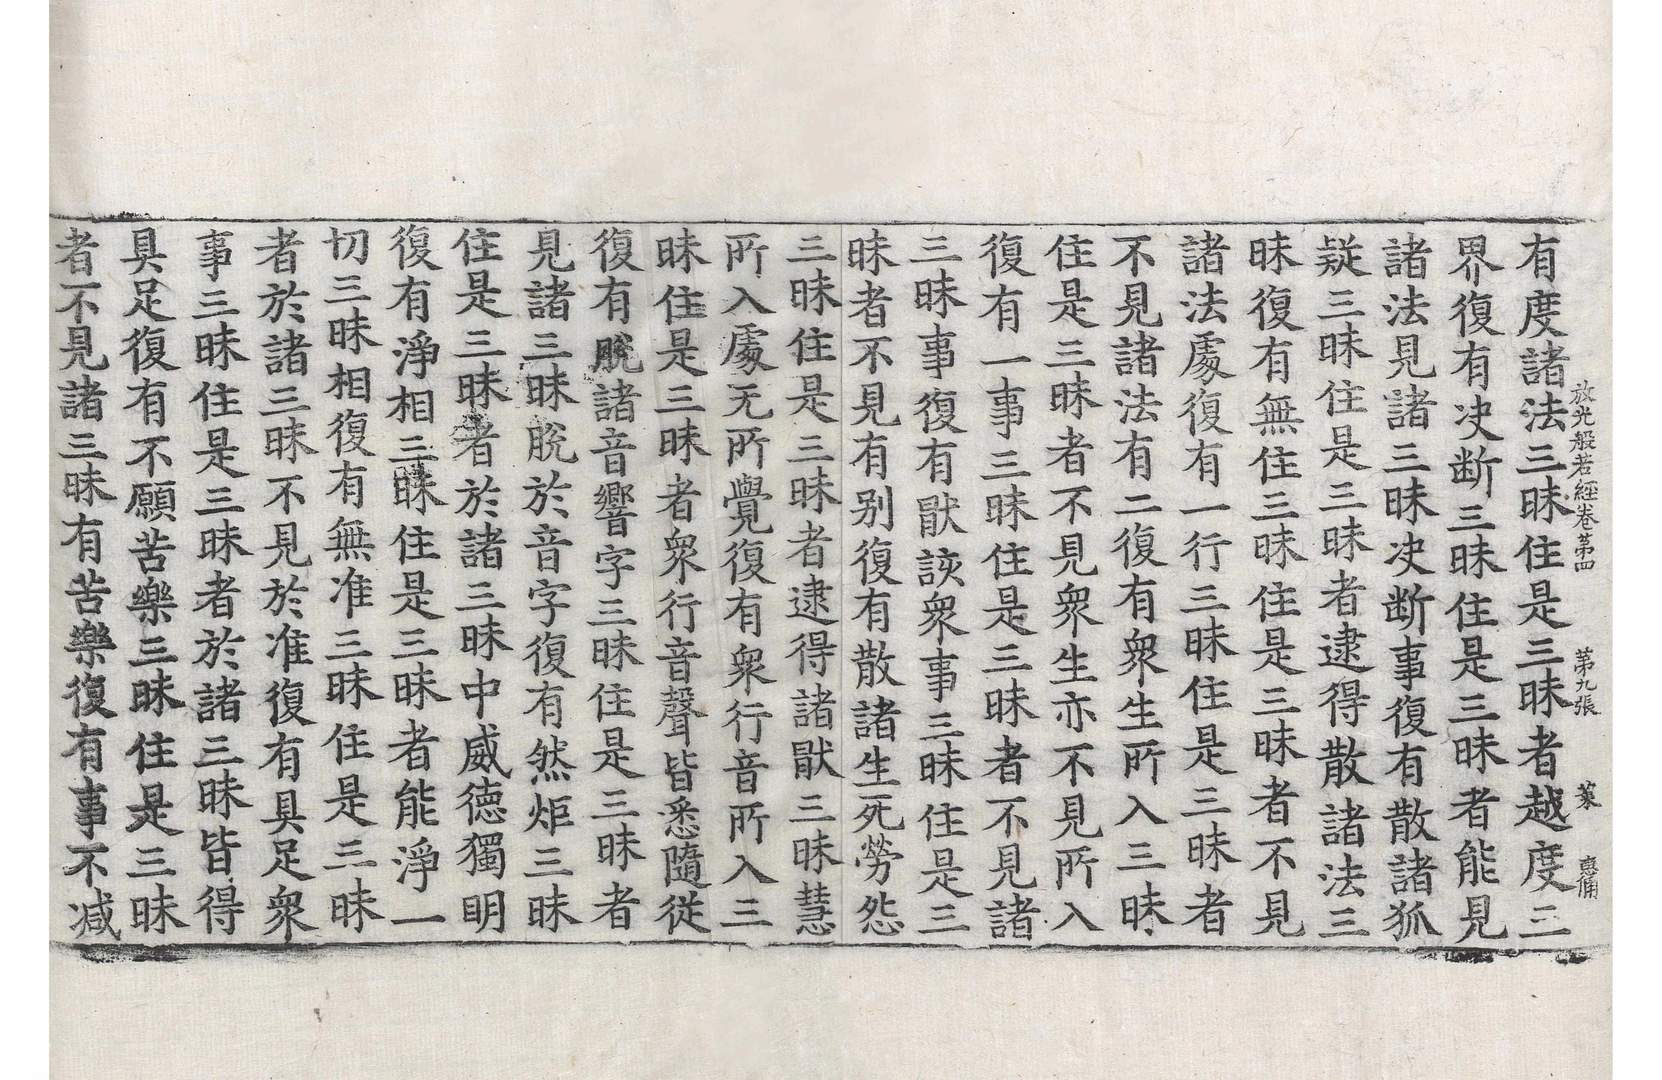 放光般若經卷第四 第九張 菜 惠俑
有度諸法三昧住是三昧者越度三
界復有决断三昧住是三昧者能見
諸法見諸三昧决断事復有散諸狐
疑三昧住是三昧者逮得散諸法三
昧復有無住三昧住是三昧者不見
諸法處復有一行三昧住是三昧者
不見諸法有二復有衆生所入三昧
住是三昧者不見衆生亦不見所入
復有一事三昧住是三昧者不見諸
三昧事復有猒該衆事三昧住是三
昧者不見有別復有散諸生死勞怨
三昧住是三昧者逮得諸猒三昧慧
所入處无所覺復有衆行音所入三
昧住是三昧者衆行音聲皆悉隨從
復有脫諸音響字三昧住是三昧者
見諸三昧脫於音字復有然炬三昧
住是三昧者於諸三昧中威德獨明
復有淨相三昧住是三昧者能淨一
切三昧相復有無准三昧住是三昧
者於諸三昧不見於准復有具足衆
事三昧住是三昧者於諸三昧皆得
具足復有不願苦樂三昧住是三昧
者不見諸三昧有苦樂復有事不减